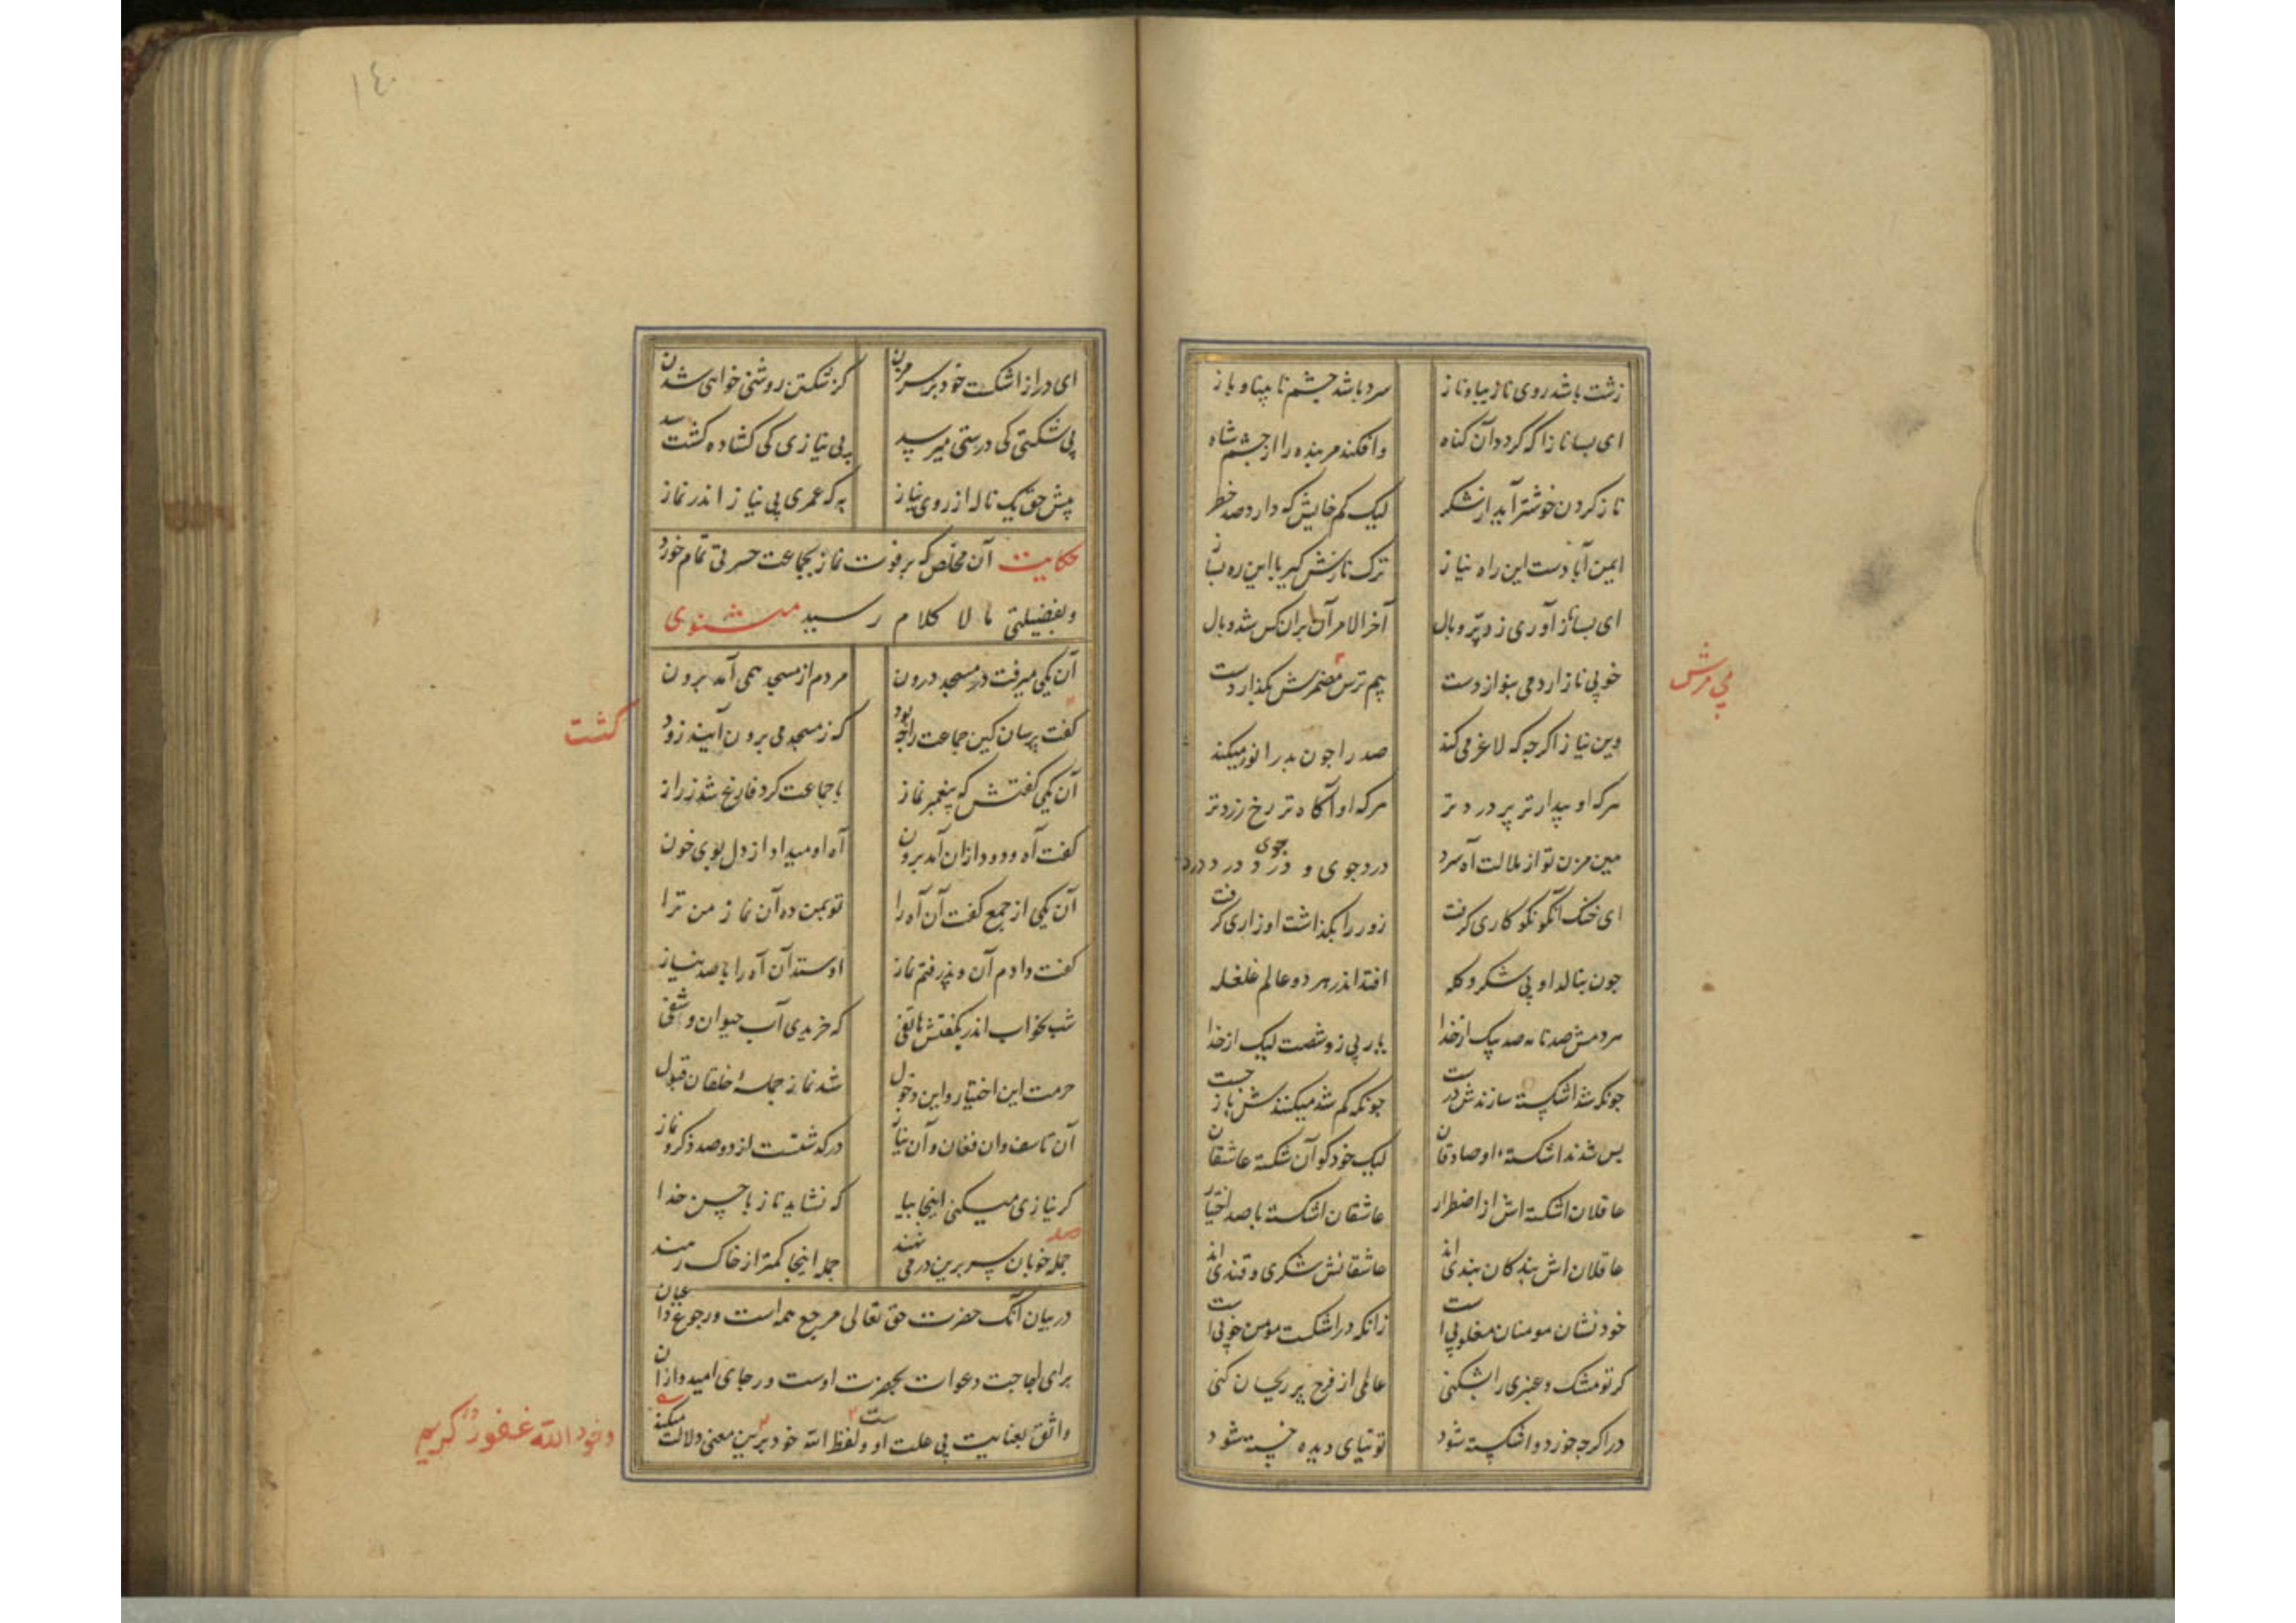 زشت باشد روی نازیبا و ناز سرد باشد چشم نابینا و باز
ای بسا نازا که گردد آن گناه وافکند مر بنده را از چشم شاه
ناز کردن خوشتر آید از شکر لیک کم خایش که دارد صد خطر
ایمن آبادست این راه نیاز ترک نازش گیر با این ره بساز
ای بسا ناز آوری زد پر و بال آخر الامر آن بران کس شد وبال
خوبی ناز ار دمی بنوازدست بیم ترس مضمرش بگذاردست
می فرش
وین نیاز اگرچه که لاغر می کند صدر را چون بدر انور میکند
هرکه او بیدارتر پر دردتر هرکه او آگاه تر رخ زردتر
هین مزن تو از ملالت آه سرد درد جوی و درد جوی درد درد
ای خنک آنکو نکوکاری گرفت زور را بگذاشت او زاری گرفت
چون بنالد او بی شکر و گله افتد اندر هر دو عالم غلغله
هر دمش صد نامه صد پیک از خدا یاربی زو شصت لبیک از خدا
چونکه شد اشکسته سازندش درست چونکه گم شد میکنندش باز جست
بس شدند اشکستهٔ او صادقان لیک خود کو آن شکسته عاشقان
عاقلان اشکسته اش از اضطرار عاشقان اشکسته با صد اختیار
عاقلان اش بندگان بندی اند عاشقانش شکری و قندی اند
خود نشان مومنان مغلوبی است زانکه در اشکست مومن خوبی است
گر تو مشک و عنبری را بشکنی عالمی از فرح پر ریحان کنی
در اگرچه خورد و اشکسته شود توتیای دیده خسته شود
١٤٠
ای در از اشکست خود بر سر مزن کز شکستن روشنی خواهی شدن
بی شکستی کی درستی میرسد بی نیازی کی گشاده گشت سد
پیش حق یک ناله از روی نیاز به که عمری بی نیاز اندر نماز
حکایت آن مخلص که بر فوت نماز بجماعت حسرتی تمام خورد
وبفضیلتی مالا کلام رسید مثنوی
آن یکی میرفت در مسجد درون مردم از مسجد همی آمد برون
گشت
گفت پرسان کین جماعت را چه بود که ز مسجد می برون آیند زود
آن یکی گفتش که پیغمبر نماز با جماعت کرد فارغ شد ز راز
گفت آه و دود ازان آمد برون آه او میداد از دل بوی خون
آن یکی از جمع گفت آن آه را تو بمن ده آن نماز من ترا
گفت دادم آن و پذرفتم نماز او ستد آن آه را با صد نیاز
شب بخواب اندر بگفتش هاتفی که خریدی آب حیوان و شفی
حرمت این اختیار و این دخول شد نماز جملهٔ خلقان قبول
آن تاسف وان فغان و آن نیاز درگذشتست از دو صد ذکر و نماز
گر نیازی میکنی اینجا بیا که نشاید ناز با حسن خدا
جمله خوبان سر برین در می نهند جمله اینجا کمتر از خاک رهند
در بیان آنک حضرت حق تعالی مرجع همه است و رجوع داعیان
برای اجابت دعوات بحضرت اوست و رجای امیدواران
واثق بعنایت بی علت اوست و لفظ الله خود برین معنی دلالت میکند
وهو الله غفور کریم